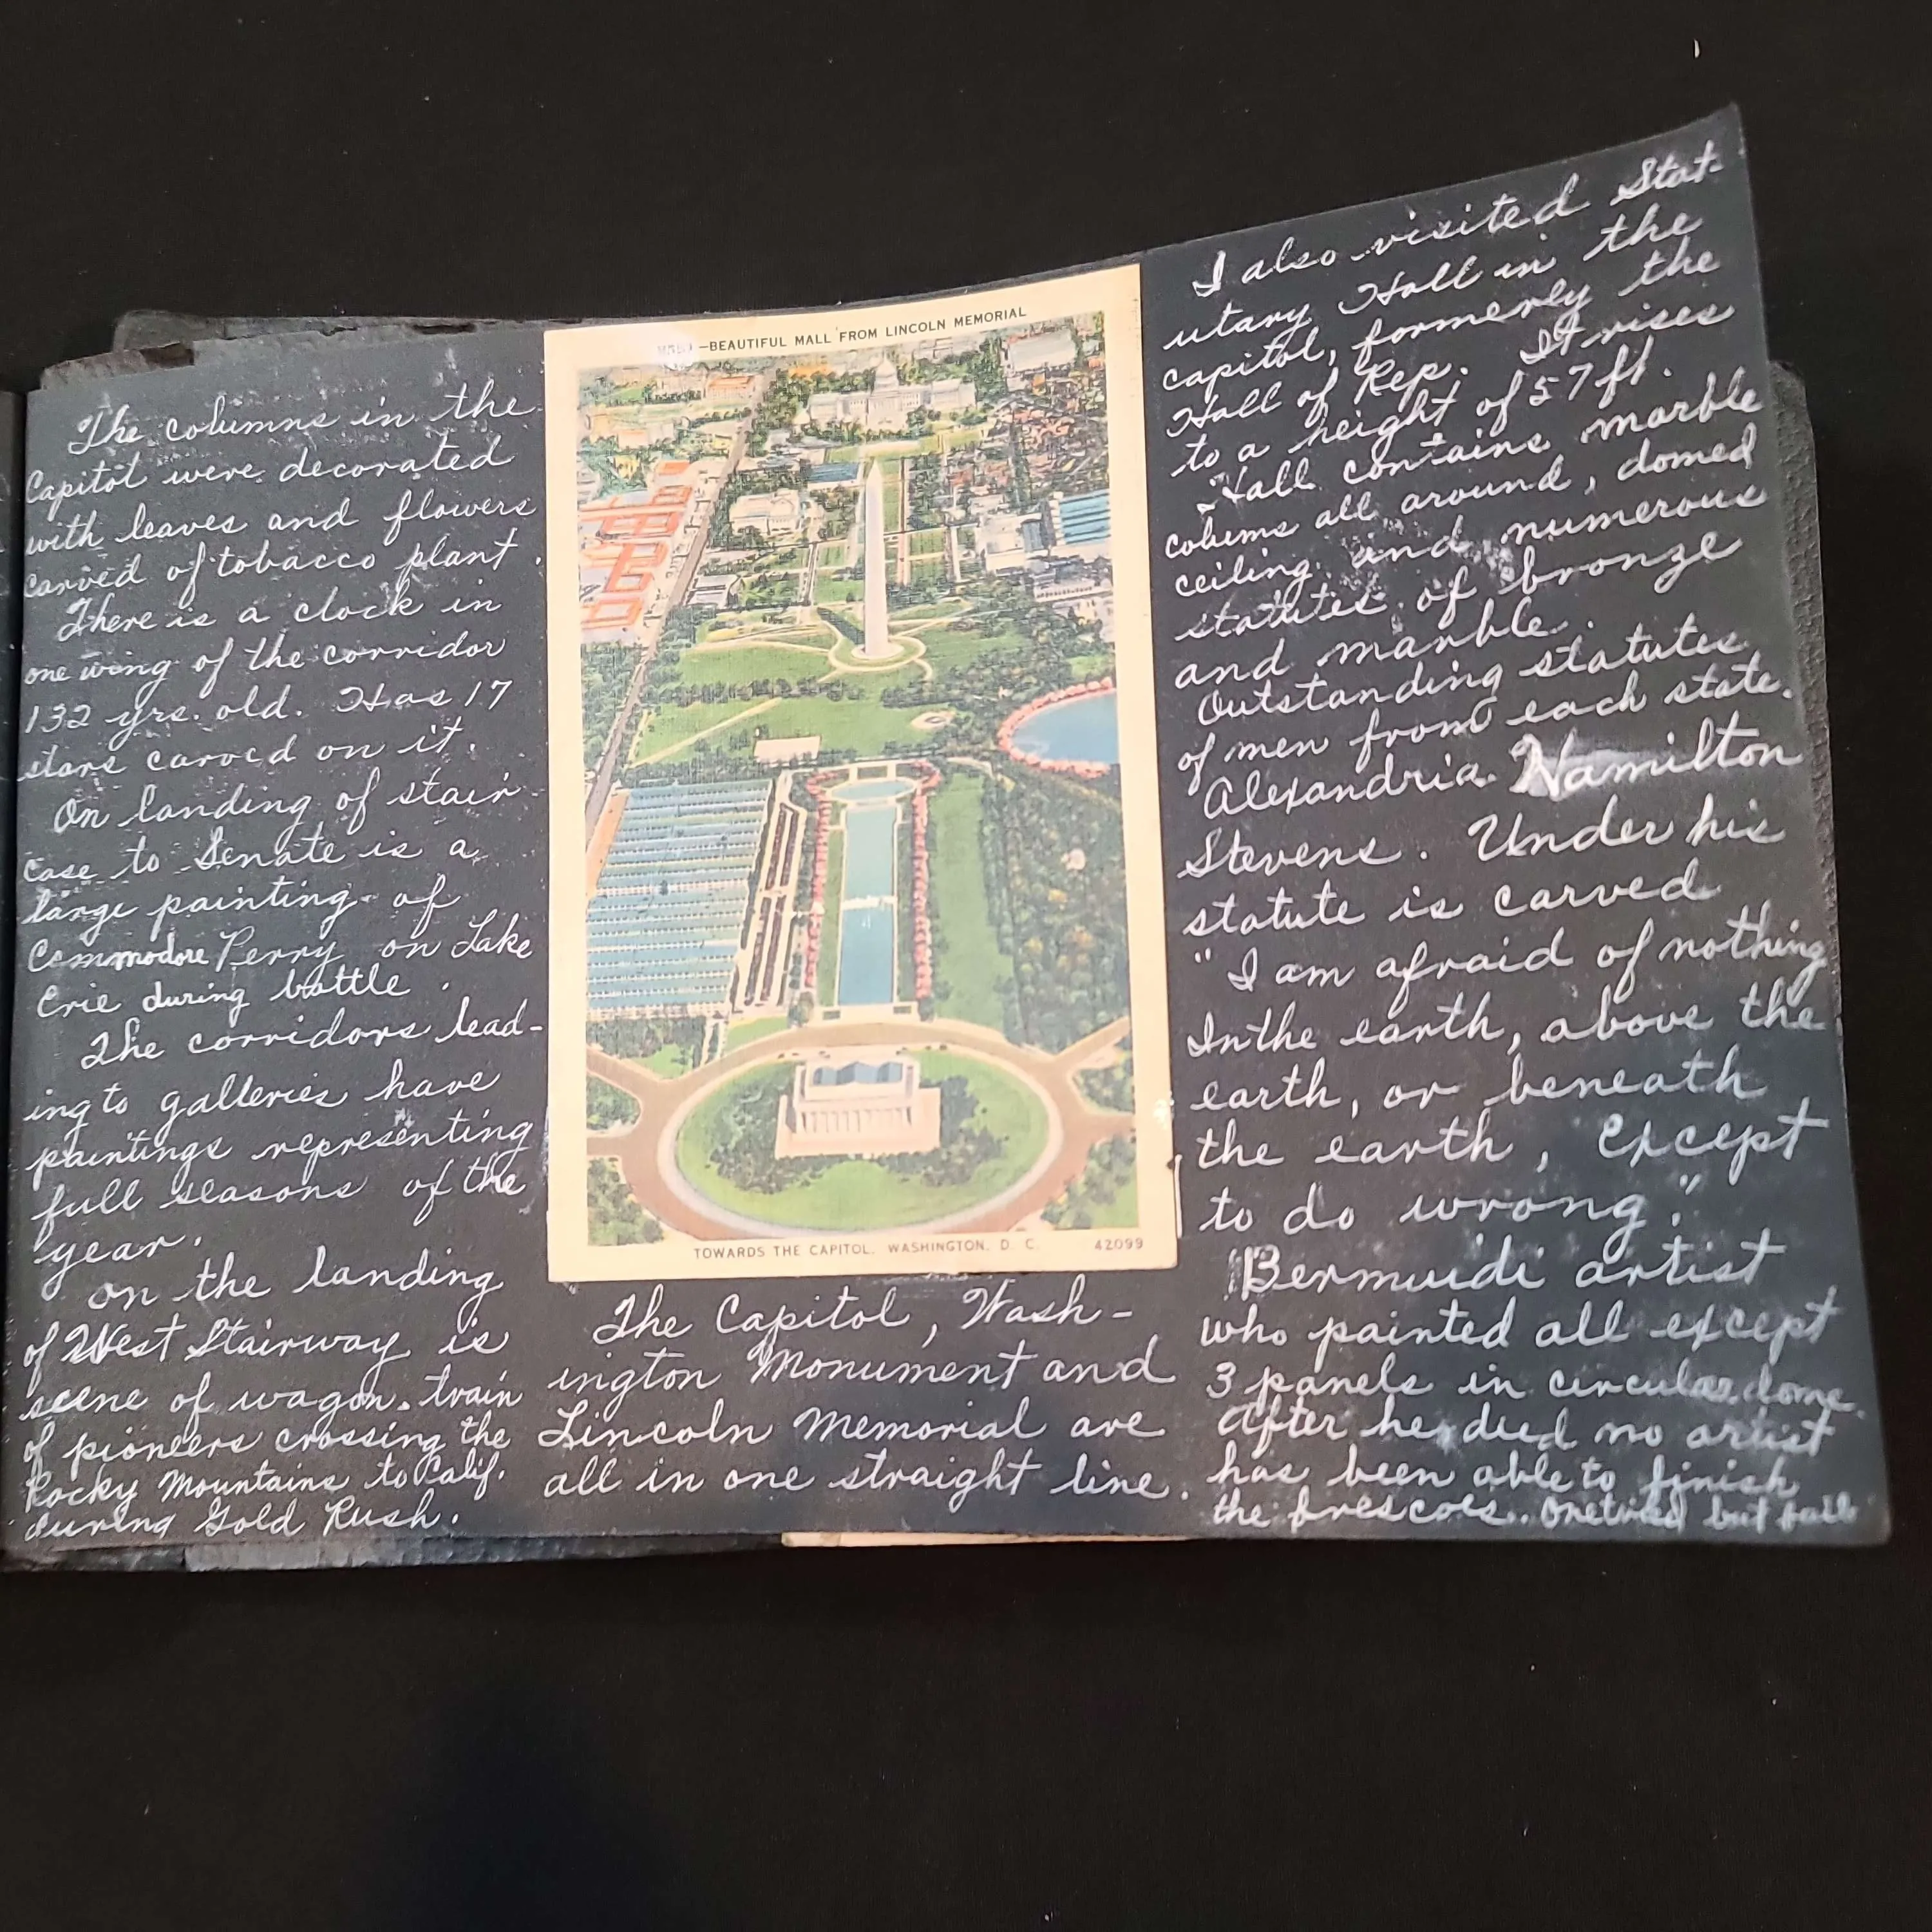 The columns in the
Capitol were decorated
with leaves and flowers
carved of tobacco plant.
There is a clock in
one wing of the corridor
132 yrs. old. Has 17
stars carved on it.
On landing of stair-
case to Senate is a
large painting of
Commodore Perry on Lake
Erie during battle.
The corridors lead-
ing to galleries have
paintings representing
full seasons of the
year.
on the landing
of West Stairway is
scene of wagon train
of pioneers crossing the
Rocky Mountains to Calif.
during Gold Rush.
-BEAUTIFUL MALL FROM LINCOLN MEMORIAL
TOWARDS THE CAPITOL, WASHINGTON, D. C. 42099
The Capitol, Wash-
ington Monument and
Lincoln Memorial are
all in one straight line.
I also visited Stat-
utary Hall in the
capitol, formerly the
Hall of Rep. It rises
to a height of 57 ft.
Hall contains marble
colums all around, domed
ceiling and numerous
statutes of bronze
and marble.
Outstanding statutes
of men from each state.
Alexandria Hamilton
Stevens. Under his
statute is carved
"I am afraid of nothing
In the earth, above the
earth, or beneath
the earth, except
to do wrong."
Bermuidi artist
who painted all except
3 panels in circular dome.
After he died no artist
has been able to finish
the frescoes. One tried but fail